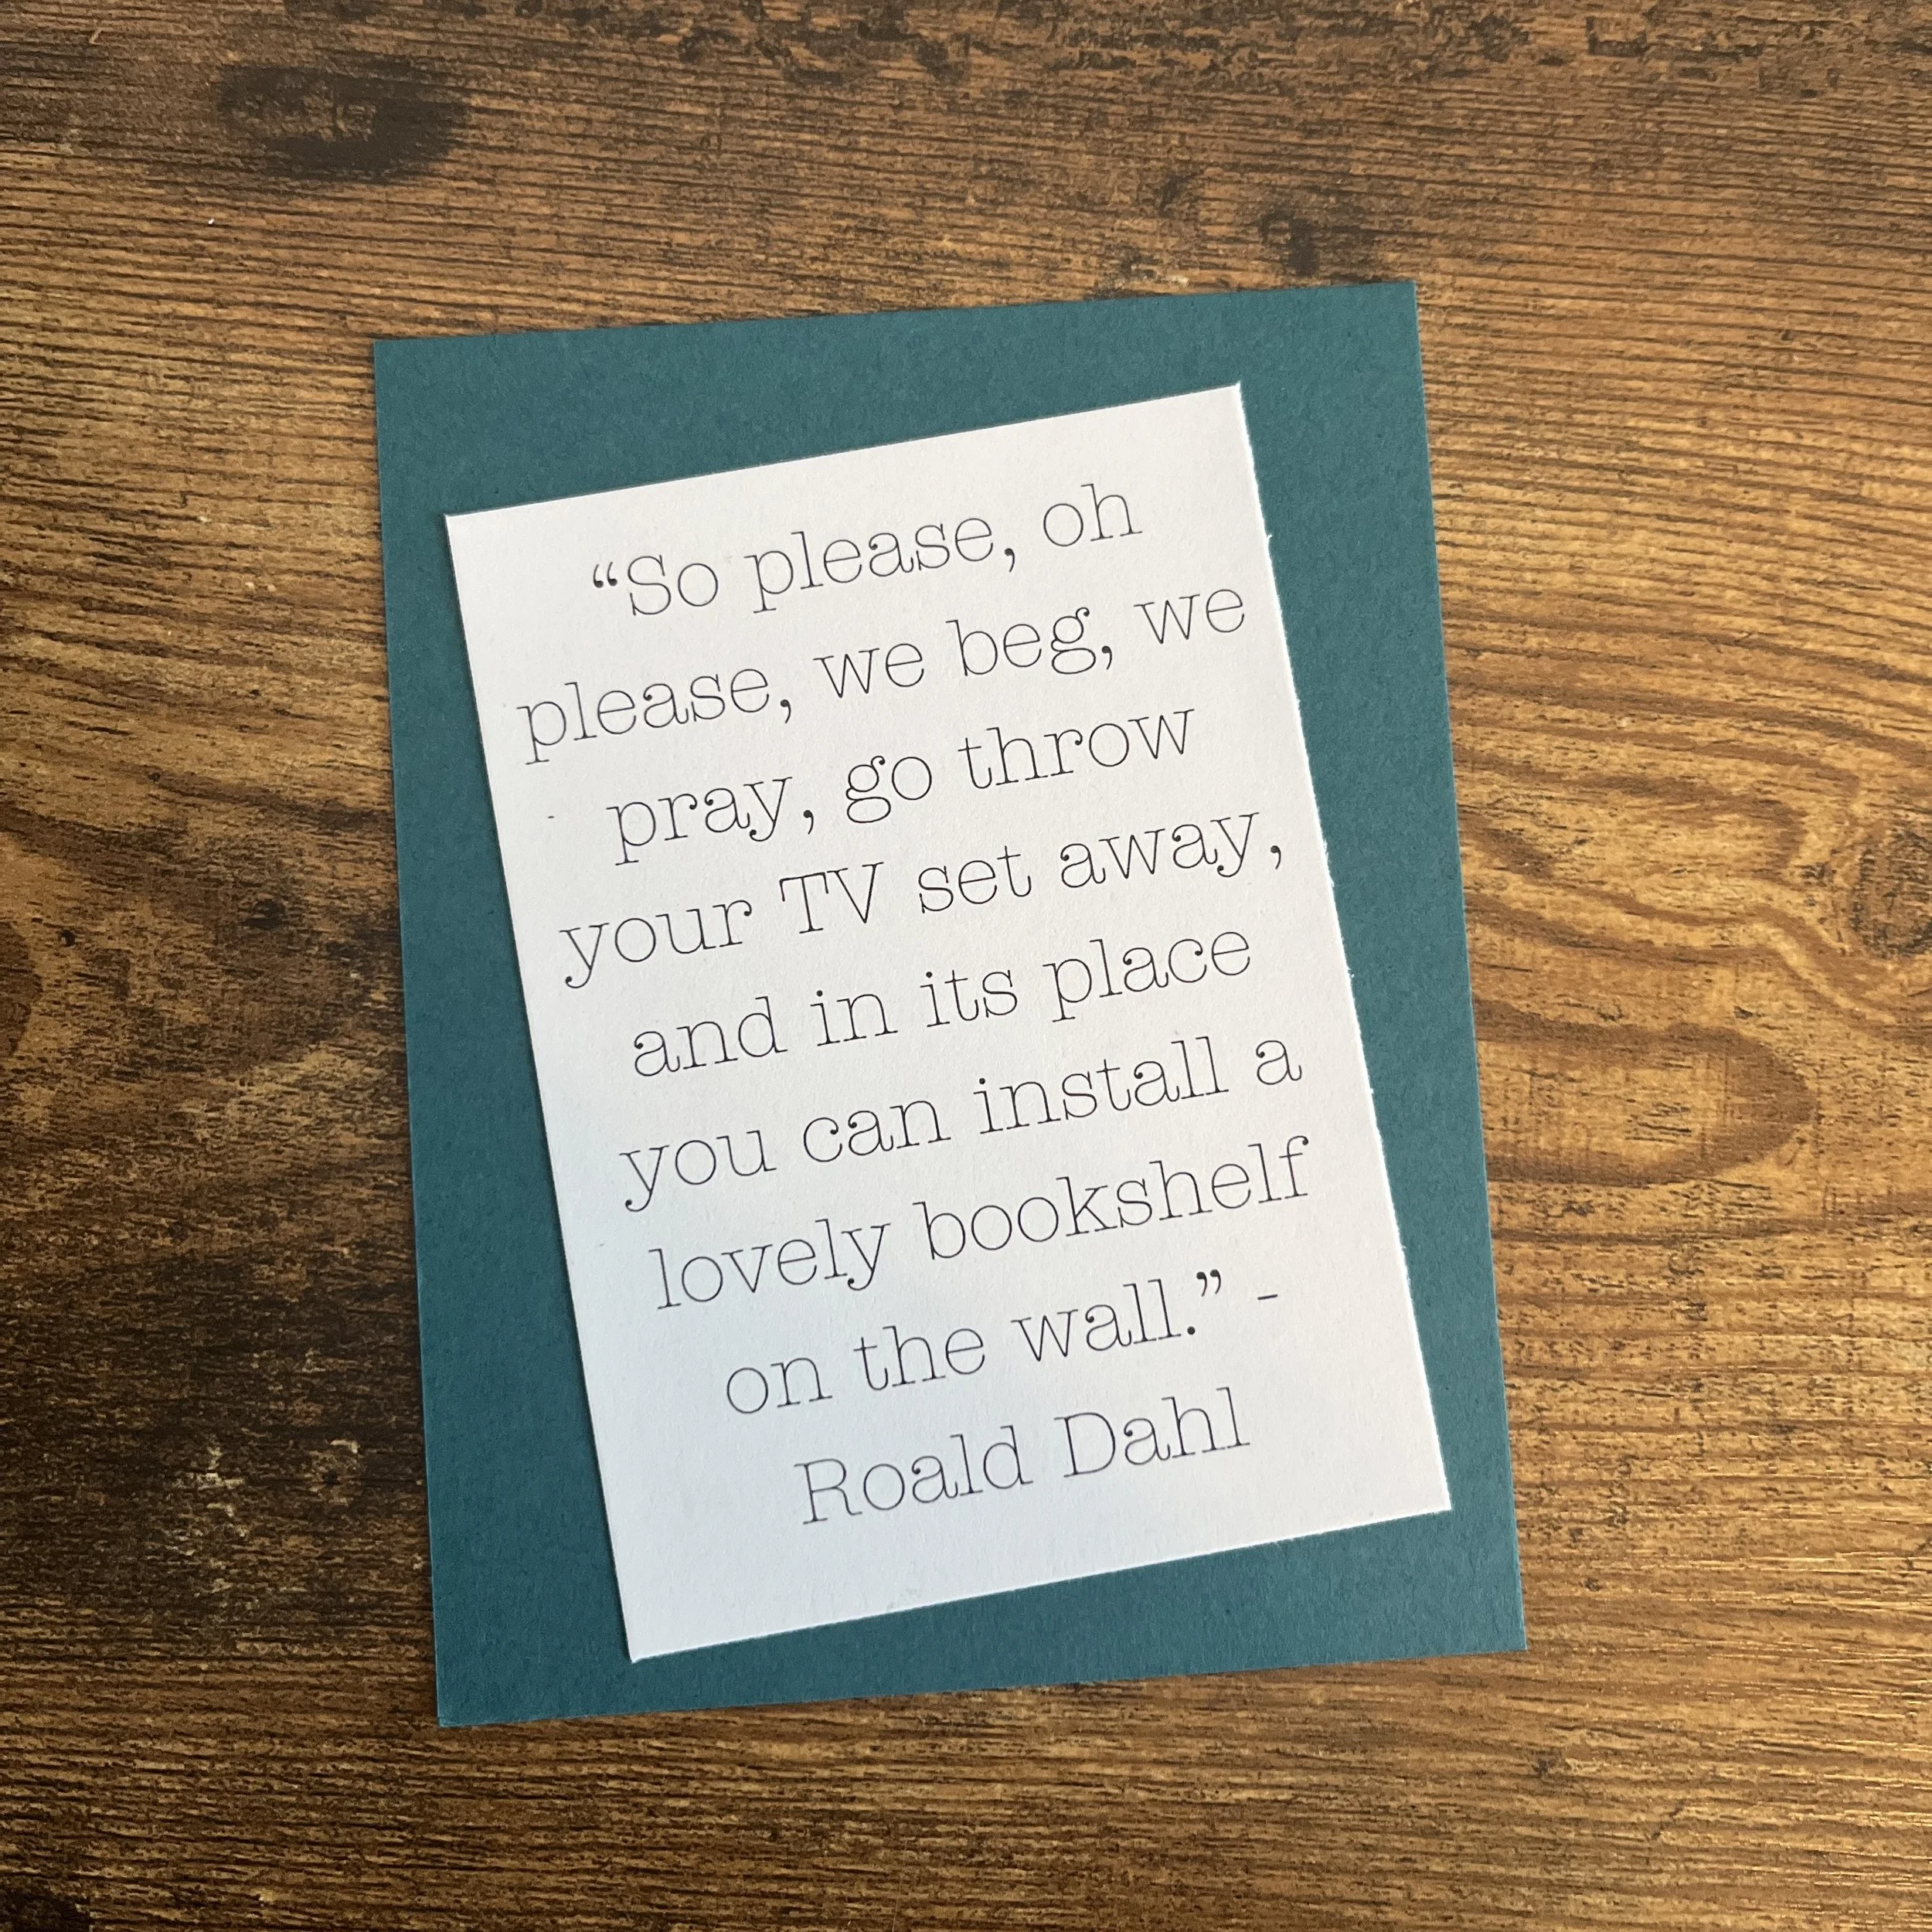 “So please, oh
please, we beg, we
pray, go throw
your TV set away,
and in its place
you can install a
lovely bookshelf
on the wall.” -
Roald Dahl